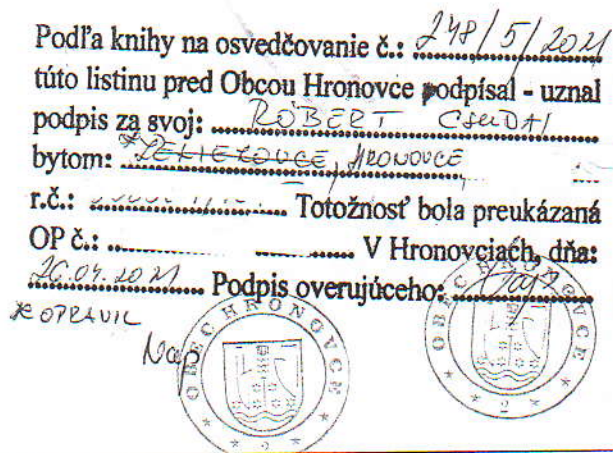 Podľa knihy na osvedčovanie č.: 248/5/2021
túto listinu pred Obcou Hronovce podpísal - uznal
podpis za svoj: RÓBERT CSUDAI
bytom: ŽELIEZOVCE, HRONOVCE
r.č.: Totožnosť bola preukázaná
OP č.: V Hronovciach, dňa:
26.04.2021 Podpis overujúceho:
OPRAVIL
OBEC HRONOVCE
2
OBEC HRONOVCE
2